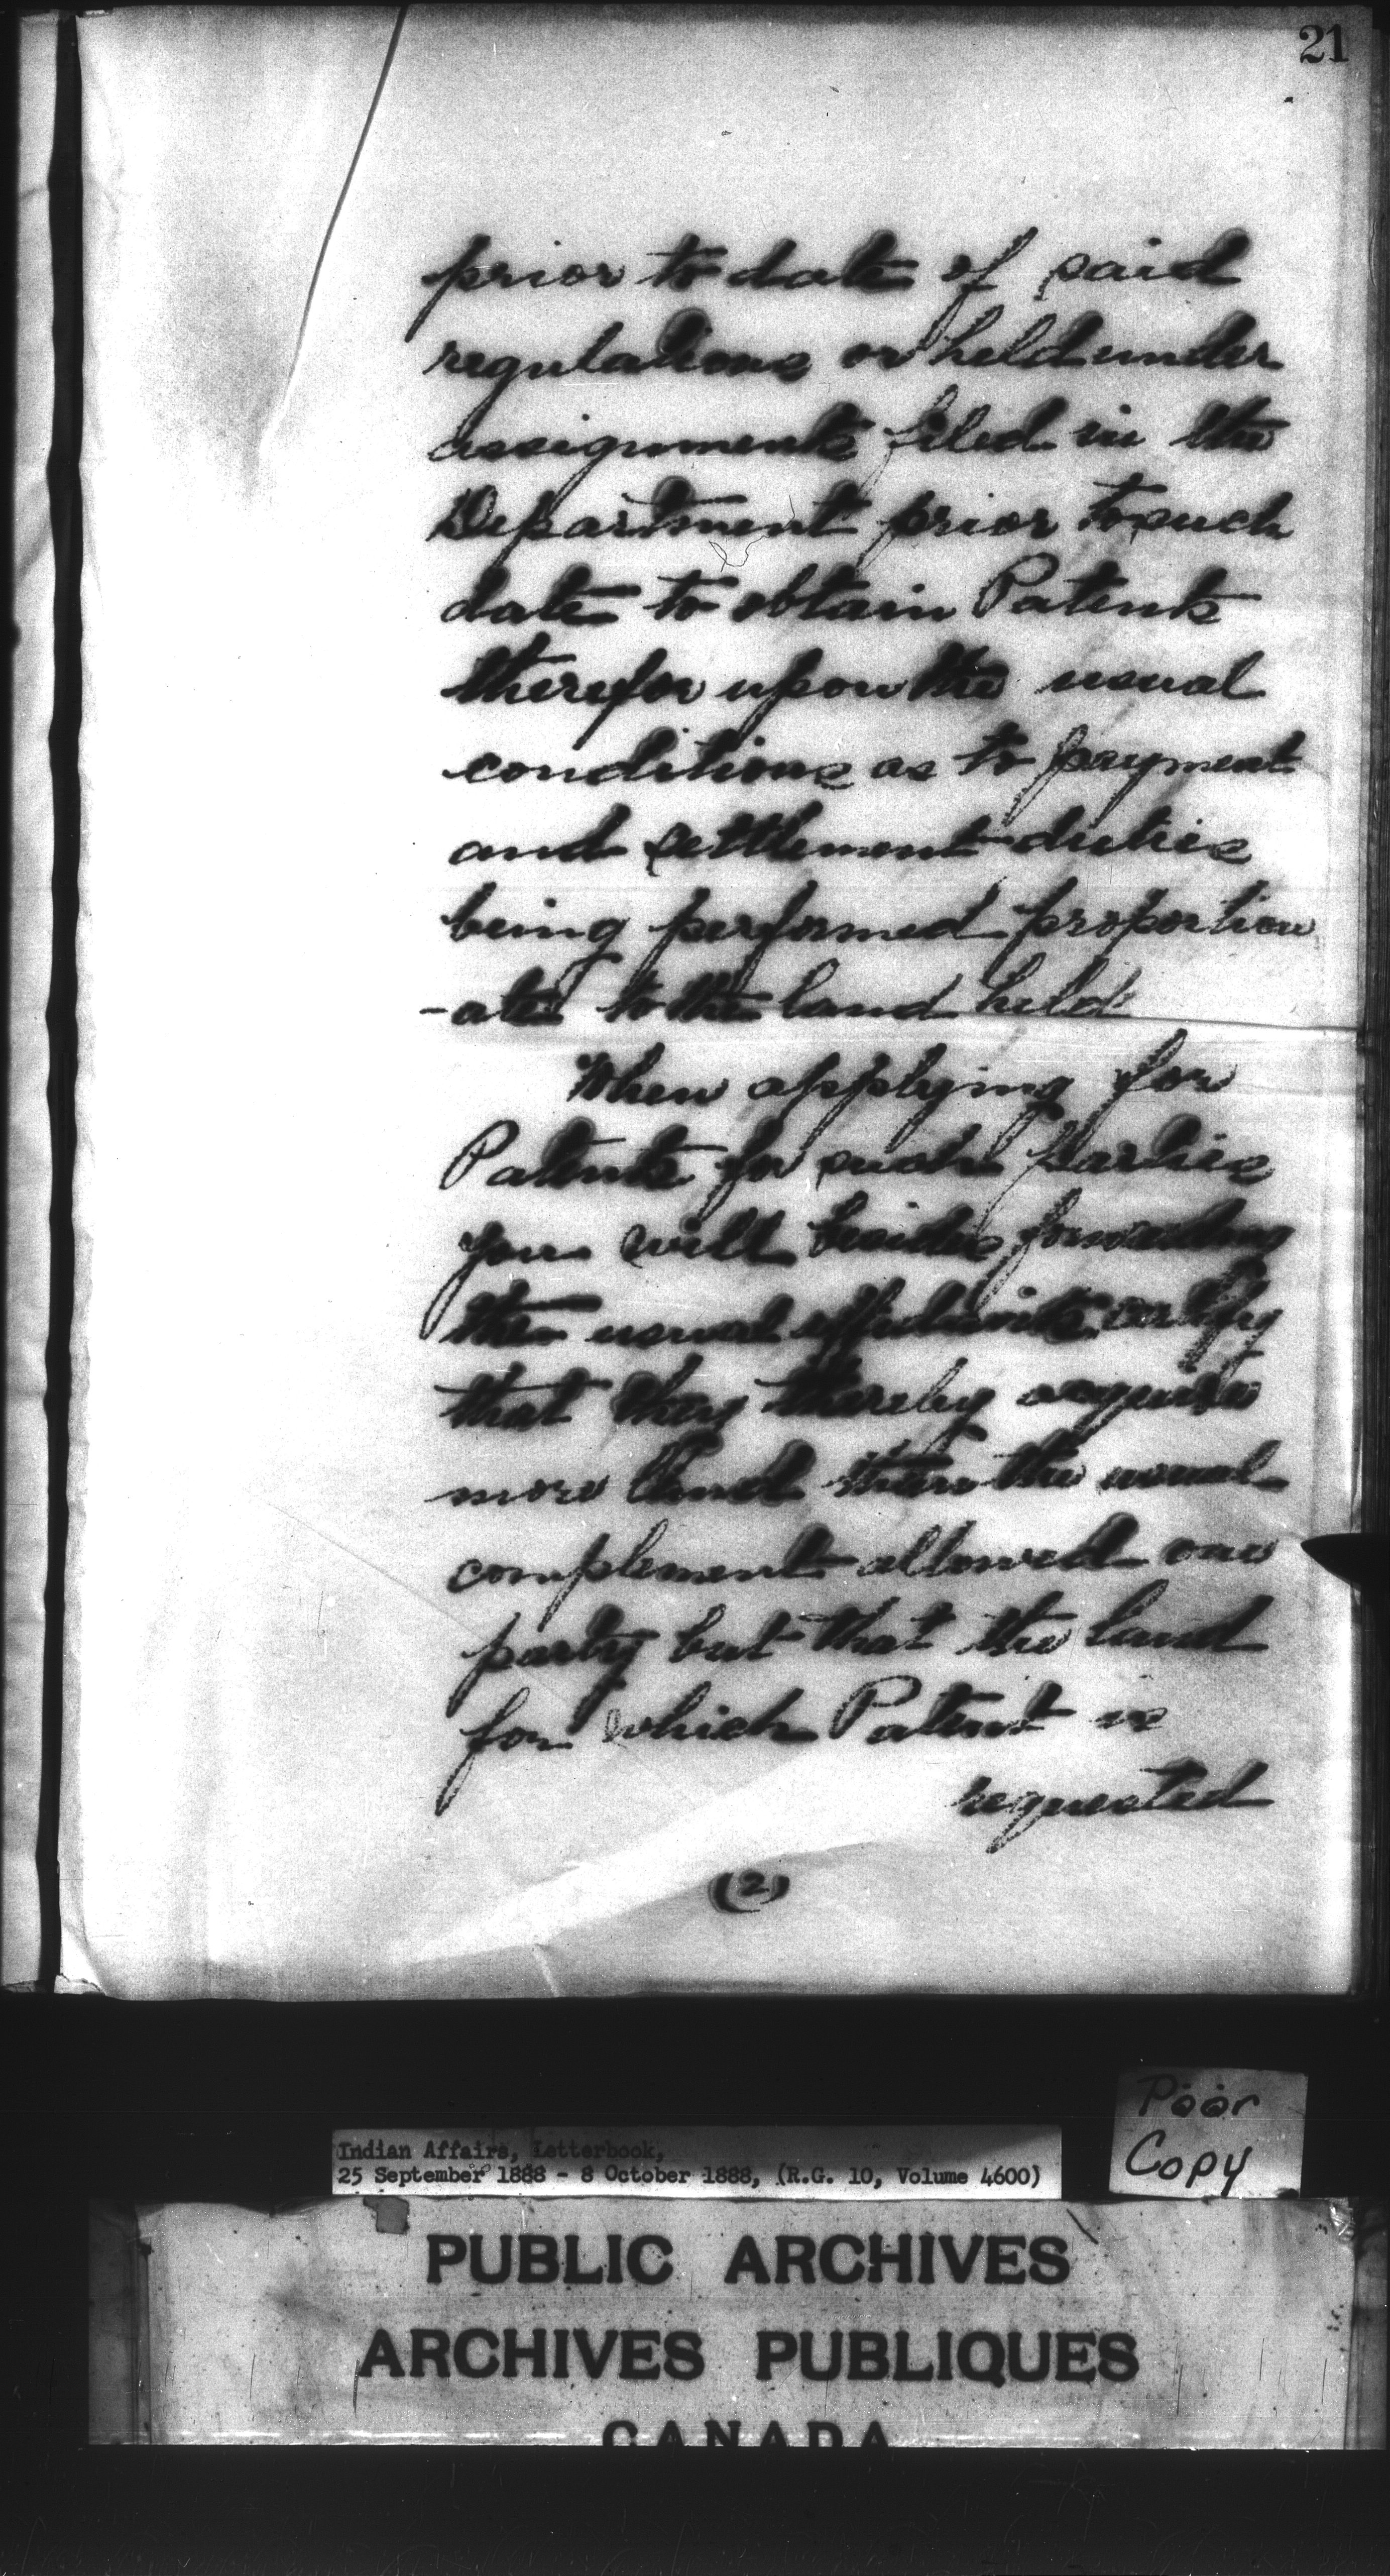 21
prior to date of said
regulations or held under
assignments filed in the
Department prior to such
date to obtain Patents
therefor upon the usual
conditions as to payment
and settlement duties
being performed proportion
-ate to the land held
When applying for
Patents for such parties
you will besides forwarding
the usual affidavits certify
that they thereby acquire
more land than the usual
complement allowed one
party but that the land
for which Patent is
requested
(2)
Poor
Copy
Indian Affairs, Letterbook,
25 September 1888 - 8 October 1888, (R.G. 10, Volume 4600)
PUBLIC ARCHIVES
ARCHIVES PUBLIQUES
CANADA